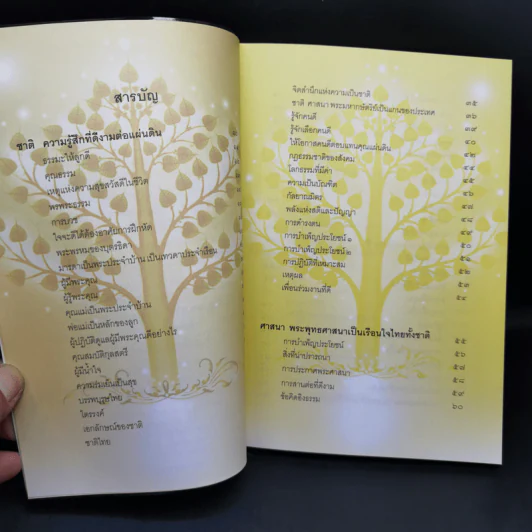 สารบัญ
ชาติ ความรู้สึกที่ดีงามต่อแผ่นดิน
ธรรมะให้ลูกดี
คุณธรรม
เหตุแห่งความสุขสวัสดีในชีวิต
พรพระธรรม
การบวช
ใจจะดีได้ต้องอาศัยการฝึกหัด
พระพรหมของบุตรธิดา
มารดาเป็นพระประจำบ้าน เป็นเทวดาประจำเรือน
ผู้มีพระคุณ
ผู้รู้พระคุณ
คุณแม่เป็นพระประจำบ้าน
พ่อแม่เป็นหลักของลูก
ผู้ปฏิบัติดูแลผู้มีพระคุณดีอย่างไร
คุณสมบัติกุลสตรี
ผู้มีน้ำใจ
ความร่มเย็นเป็นสุข
บรรพบุรุษไทย
ไตรรงค์
เอกลักษณ์ของชาติ
ชาติไทย
จิตสำนึกแห่งความเป็นชาติ
ชาติ ศาสนา พระมหากษัตริย์เป็นแกนของประเทศ ๓๕
รู้จักคนดี ๓๖
รู้จักเลือกคนดี ๓๙
ให้โอกาสคนดีตอบแทนคุณแผ่นดิน ๔๐
กฎธรรมชาติของสังคม ๔๒
โลกธรรมที่มีค่า ๔๔
ความเป็นบัณฑิต ๔๕
กัลยาณมิตร ๔๖
พลังแห่งสติและปัญญา ๔๗
การดำรงตน ๔๘
การบำเพ็ญประโยชน์ ๑ ๔๙
การบำเพ็ญประโยชน์ ๒ ๕๐
การปฏิบัติที่เหมาะสม ๕๑
เหตุผล ๕๒
เพื่อนร่วมงานที่ดี ๕๓
๕๔
ศาสนา พระพุทธศาสนาเป็นเรือนใจไทยทั้งชาติ
การบำเพ็ญประโยชน์ ๕๕
สิ่งที่น่าปรารถนา ๕๖
การประกาศพระศาสนา ๕๗
การสานต่อที่ดีงาม ๕๘
ข้อคิดอิงธรรม ๕๙
๖๐